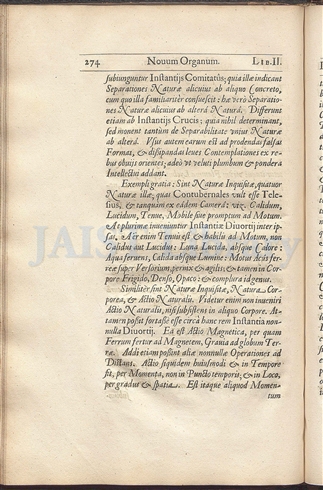 274 Novum Organum. LIB. II.
subiunguntur Instantijs Comitatûs; quia illæ indicant
Separationes Naturæ alicuius ab aliquo Concreto,
cum quo illa familiariter consuescit: hæ verò Separatio-
nes Naturæ alicuius ab alterâ Naturâ. Differunt
etiam ab Instantijs Crucis; quia nihil determinant,
sed monent tantùm de Separabilitate vnius Naturæ
ab alterâ. Vsus autem earum est ad prodendas falsas
Formas, & dissipandas leues Contemplationes ex re-
bus obuijs orientes; adeò vt veluti plumbum & pondera
Intellectui addant.
Exempli gratia: Sint Naturæ Inquisitæ, quatuor
Naturæ illæ, quas Contubernales vult esse Tele-
sius, & tanquam ex eâdem Camerâ: viz. Calidum,
Lucidum, Tenue, Mobile siue promptum ad Motum.
At plurimæ inueniuntur Instantiæ Diuortij inter ip-
sas. Aër enim Tenuis est & habilis ad Motum, non
Calidus aut Lucidus: Luna Lucida, absque Calore:
Aqua feruens, Calida absque Lumine: Motus Acûs fer-
reæ super Versorium, pernix & agilis; & tamen in Cor-
pore Frigido, Denso, Opaco: & complura id genus.
Similiter sint Naturæ Inquisitæ, Natura Cor-
porea, & Actio Naturalis. Videtur enim non inueniri
Actio Naturalis, nisi subsistens in aliquo Corpore. At-
tamen possit fortassè esse circa hanc rem Instantia non-
nulla Diuortij. Ea est Actio Magnetica, per quam
Ferrum fertur ad Magnetem, Grauia ad globum Ter-
ræ. Addi etiam possint aliæ nonnullæ Operationes ad
Distans. Actio siquidem huiusmodi & in Tempore
fit, per Momenta, non in Puncto temporis; & in Loco,
per gradus & spatia. Est itaque aliquod Momen-
tum